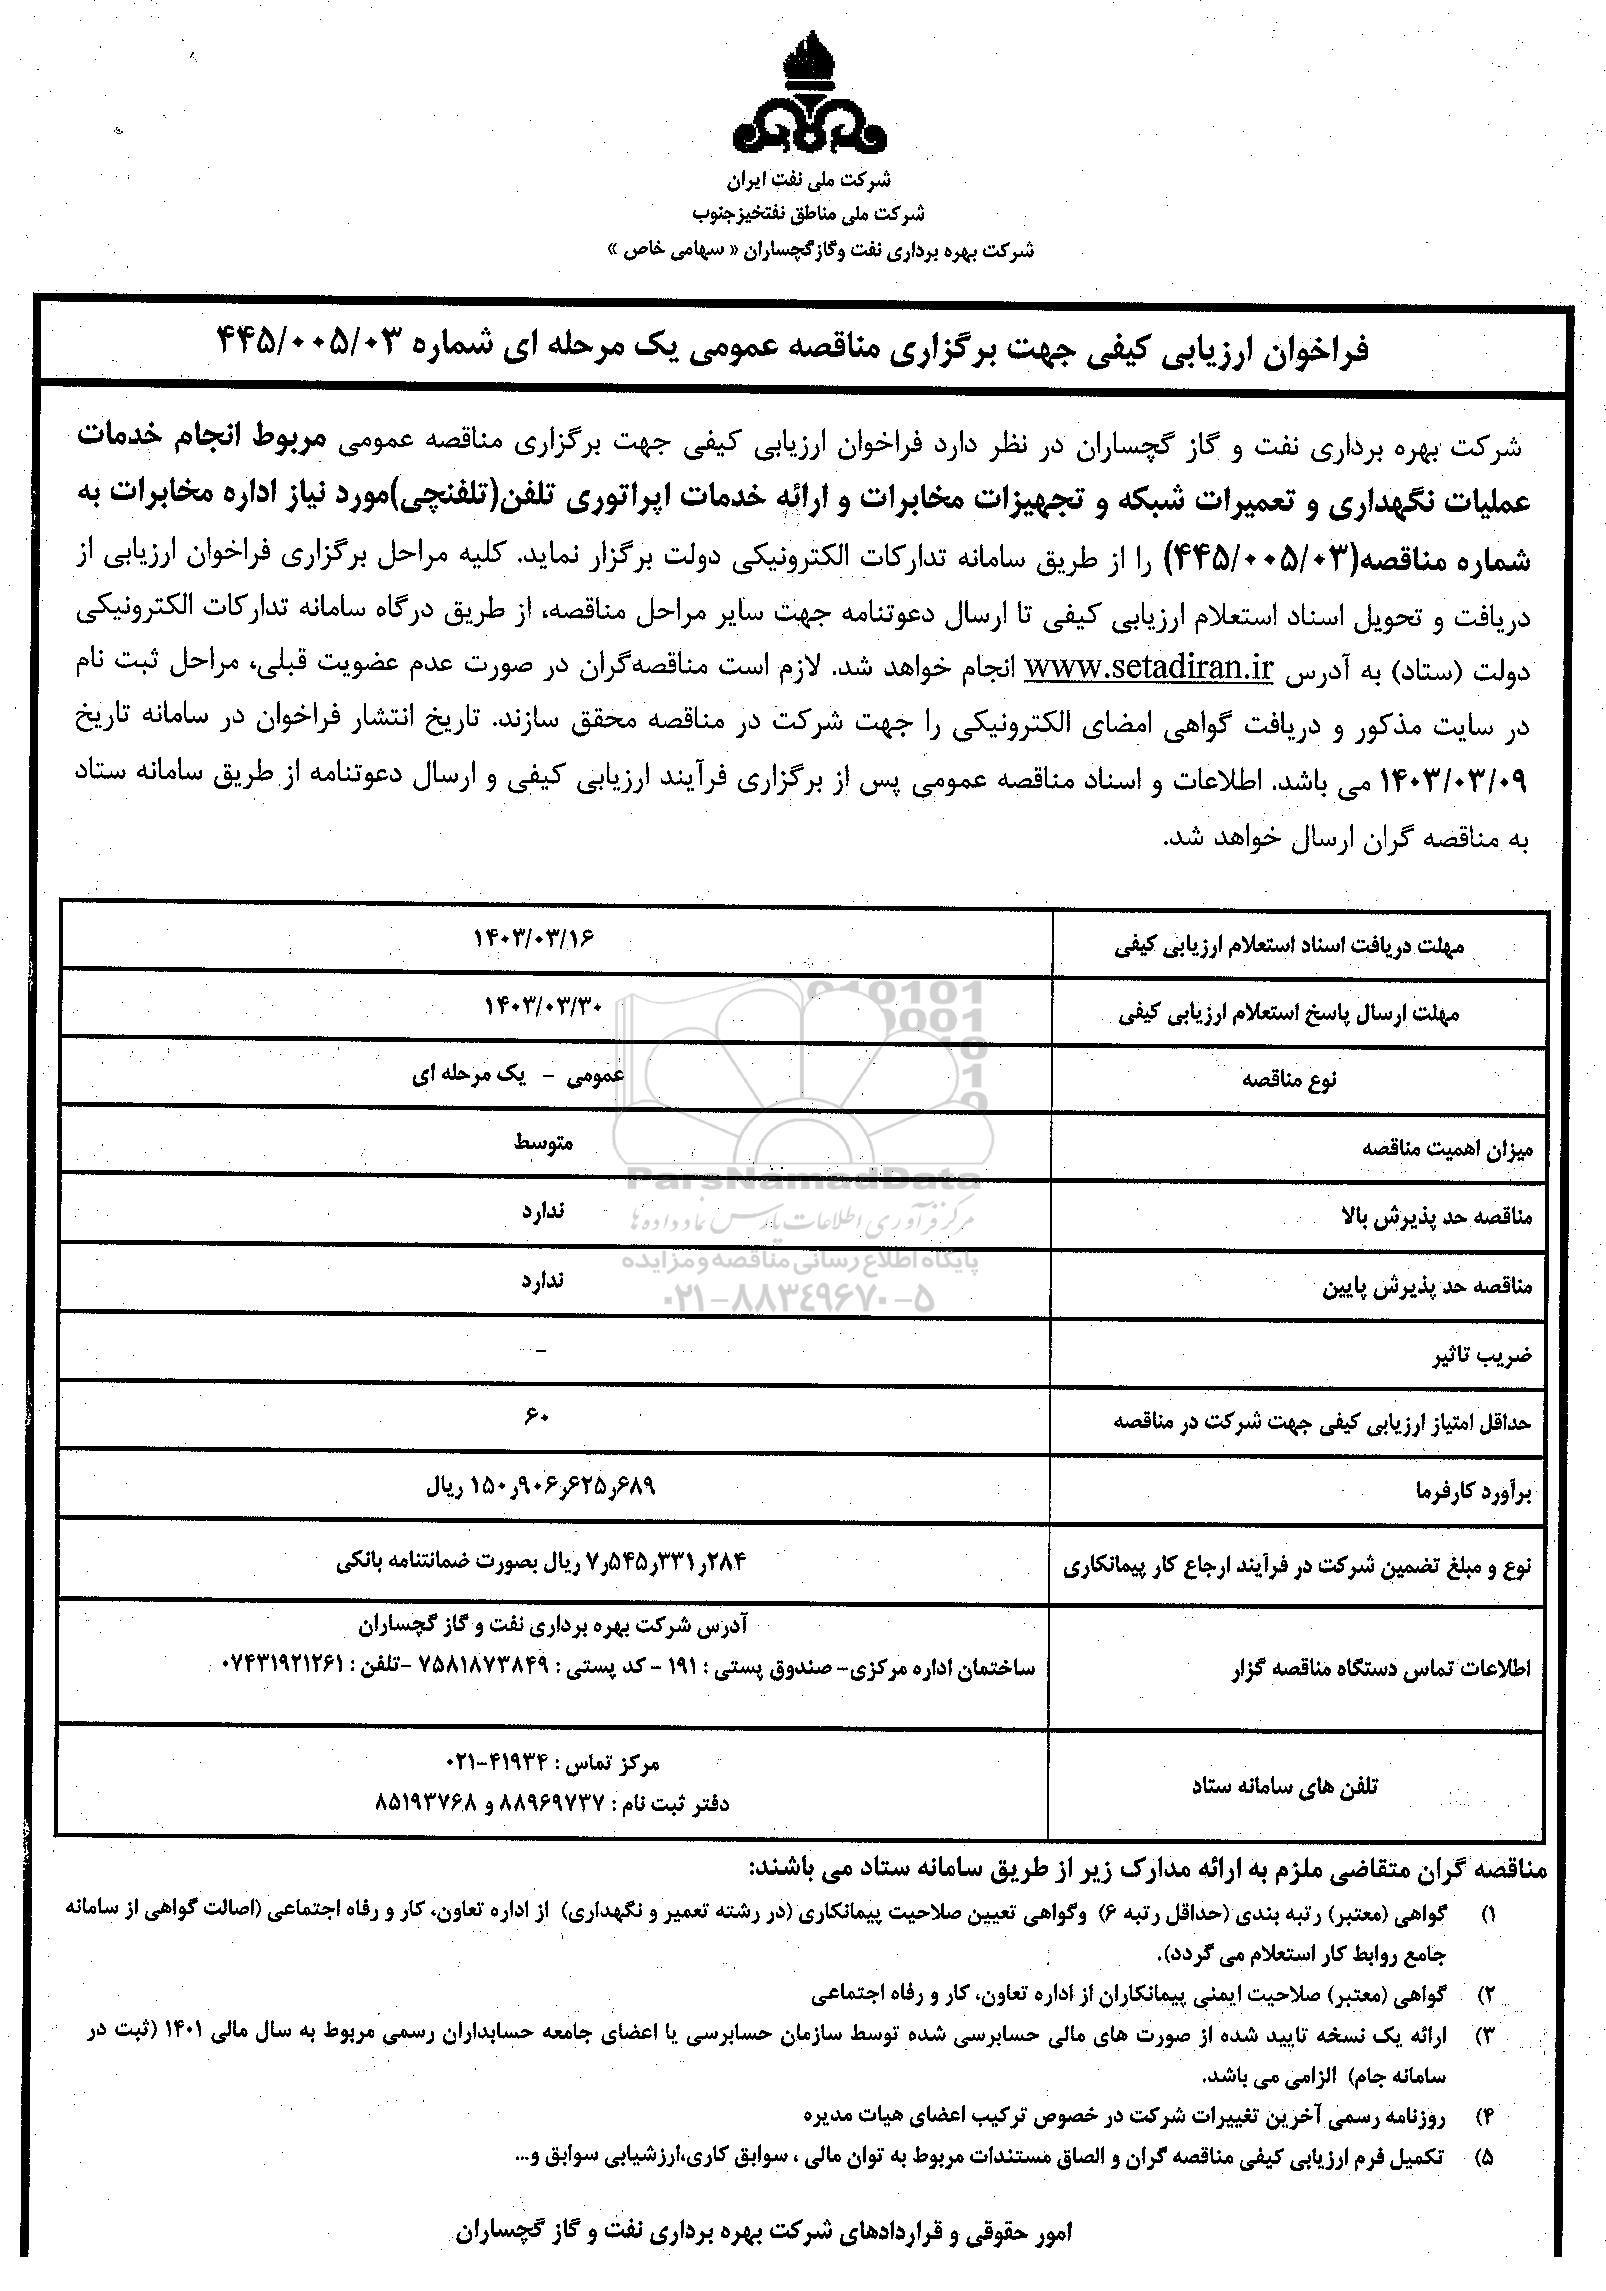 شرکت ملی نفت ایران
شرکت ملی مناطق نفتخیزجنوب
شرکت بهره برداری نفت وگازگچساران « سهامی خاص »
فراخوان ارزیابی کیفی جهت برگزاری مناقصه عمومی یک مرحله ای شماره ۴۴۵/۰۰۵/۰۳
شرکت بهره برداری نفت و گاز گچساران در نظر دارد فراخوان ارزیابی کیفی جهت برگزاری مناقصه عمومی مربوط انجام خدمات
عملیات نگهداری و تعمیرات شبکه و تجهیزات مخابرات و ارائه خدمات اپراتوری تلفن(تلفنچی)مورد نیاز اداره مخابرات به
شماره مناقصه(۴۴۵/۰۰۵/۰۳) را از طریق سامانه تدارکات الکترونیکی دولت برگزار نماید. کلیه مراحل برگزاری فراخوان ارزیابی از
دریافت و تحویل اسناد استعلام ارزیابی کیفی تا ارسال دعوتنامه جهت سایر مراحل مناقصه، از طریق درگاه سامانه تدارکات الکترونیکی
دولت (ستاد) به آدرس www.setadiran.ir انجام خواهد شد. لازم است مناقصه‌گران در صورت عدم عضویت قبلی، مراحل ثبت نام
در سایت مذکور و دریافت گواهی امضای الکترونیکی را جهت شرکت در مناقصه محقق سازند. تاریخ انتشار فراخوان در سامانه تاریخ
۱۴۰۳/۰۳/۰۹ می باشد. اطلاعات و اسناد مناقصه عمومی پس از برگزاری فرآیند ارزیابی کیفی و ارسال دعوتنامه از طریق سامانه ستاد
به مناقصه گران ارسال خواهد شد.
مهلت دریافت اسناد استعلام ارزیابی کیفی ۱۴۰۳/۰۳/۱۶
مهلت ارسال پاسخ استعلام ارزیابی کیفی ۱۴۰۳/۰۳/۳۰
نوع مناقصه عمومی – یک مرحله ای
میزان اهمیت مناقصه متوسط
مناقصه حد پذیرش بالا ندارد
مناقصه حد پذیرش پایین ندارد
ضریب تاثیر –
حداقل امتیاز ارزیابی کیفی جهت شرکت در مناقصه ۶۰
برآورد کارفرما ۱۵۰٫۹۰۶٫۶۲۵٫۶۸۹ ریال
نوع و مبلغ تضمین شرکت در فرآیند ارجاع کار پیمانکاری ۷٫۵۴۵٫۳۳۱٫۲۸۴ ریال بصورت ضمانتنامه بانکی
اطلاعات تماس دستگاه مناقصه گزار آدرس شرکت بهره برداری نفت و گاز گچساران
ساختمان اداره مرکزی– صندوق پستی : ۱۹۱ – کد پستی : ۷۵۸۱۸۷۳۸۴۹ –تلفن : ۰۷۴۳۱۹۲۱۲۶۱
تلفن های سامانه ستاد مرکز تماس : ۴۱۹۳۴–۰۲۱
دفتر ثبت نام : ۸۸۹۶۹۷۳۷ و ۸۵۱۹۳۷۶۸
ParsNamadData
مرکز فرآوری اطلاعات پارس نماد داده ها
پایگاه اطلاع رسانی مناقصه و مزایده
۰۲۱–۸۸۳۴۹۶۷۰–۵
مناقصه گران متقاضی ملزم به ارائه مدارک زیر از طریق سامانه ستاد می باشند:
۱) گواهی (معتبر) رتبه بندی (حداقل رتبه ۶) وگواهی تعیین صلاحیت پیمانکاری (در رشته تعمیر و نگهداری) از اداره تعاون، کار و رفاه اجتماعی (اصالت گواهی از سامانه
جامع روابط کار استعلام می گردد).
۲) گواهی (معتبر) صلاحیت ایمنی پیمانکاران از اداره تعاون، کار و رفاه اجتماعی
۳) ارائه یک نسخه تایید شده از صورت های مالی حسابرسی شده توسط سازمان حسابرسی یا اعضای جامعه حسابداران رسمی مربوط به سال مالی ۱۴۰۱ (ثبت در
سامانه جام) الزامی می باشد.
۴) روزنامه رسمی آخرین تغییرات شرکت در خصوص ترکیب اعضای هیات مدیره
۵) تکمیل فرم ارزیابی کیفی مناقصه گران و الصاق مستندات مربوط به توان مالی ، سوابق کاری،ارزشیابی سوابق و...
امور حقوقی و قراردادهای شرکت بهره برداری نفت و گاز گچساران